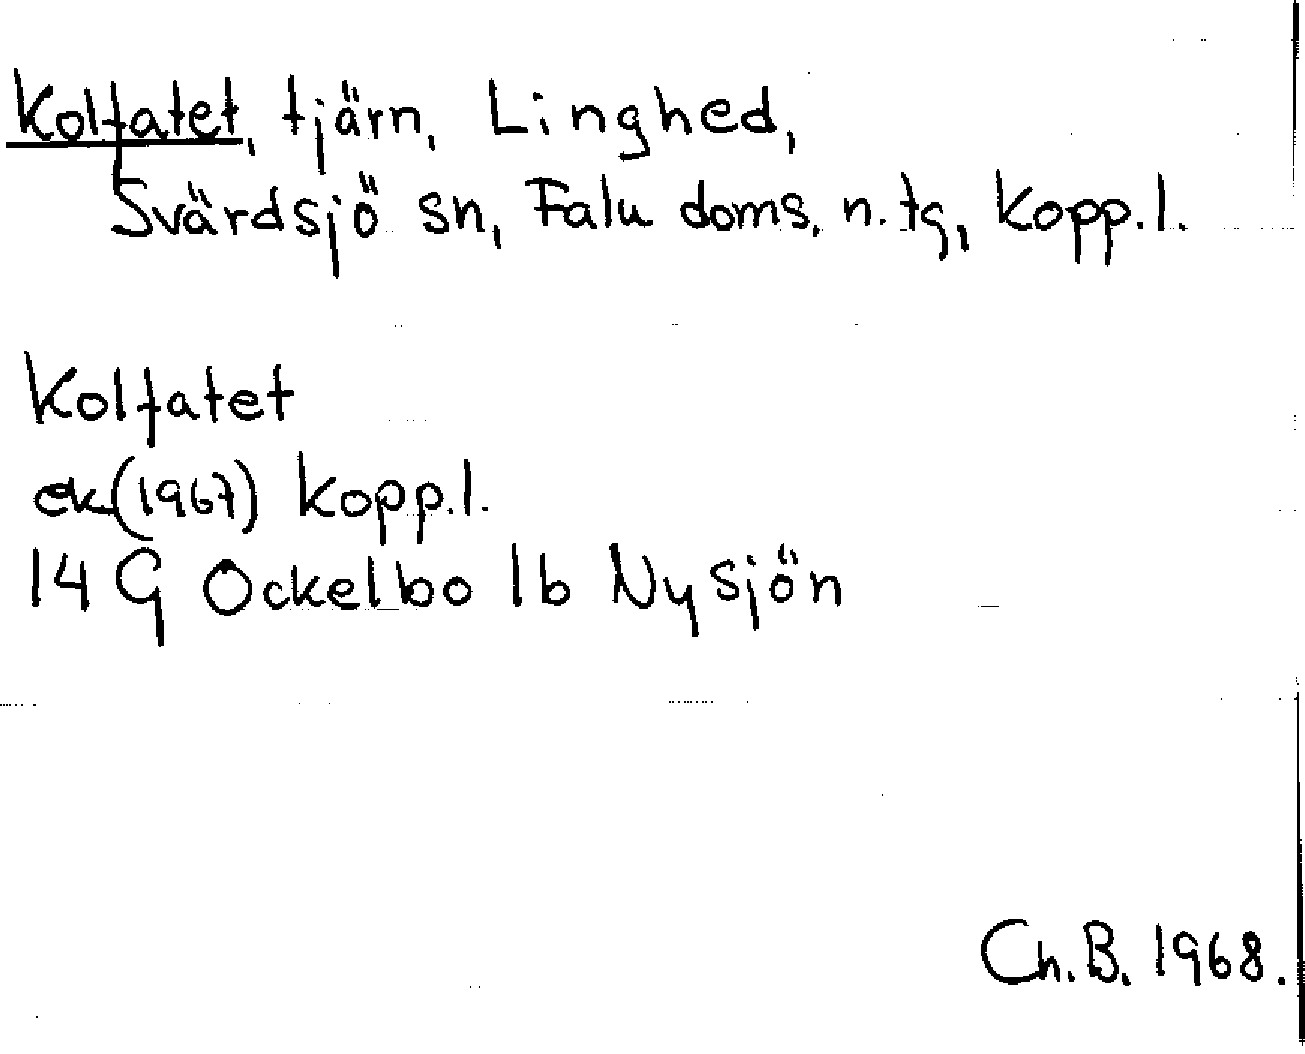 Kolfatet, tjärn, Linghed,
Svärdsjö sn, Falu doms. n. tg, Kopp.l.
Kolfatet
ek(1967) Kopp.l.
14 G Ockelbo 1b Nysjön
Ch.B. 1968.